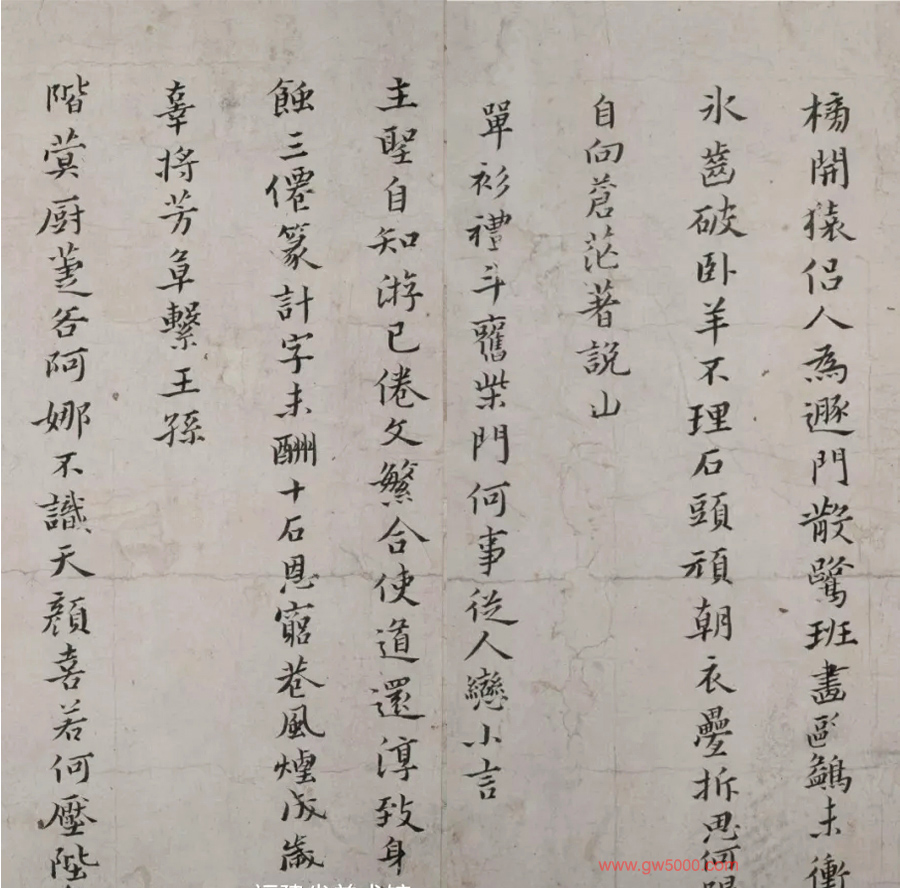 開猿侶人為遯門散鷺班畫鷁未衝
氷齒破卧羊不理石頭頑朝衣疊拆思何
自向蒼茫著説山
單衫禮斗舊柴門何事從人戀小言
主聖自知游已倦文繁合使道還淳致身
蝕三僊篆計字未酬十石恩窮巷風煙成歲
辜將芳草繫王孫
階蓂厨萐谷阿娜不識天顏喜若何壓陛
www.gw5000.com